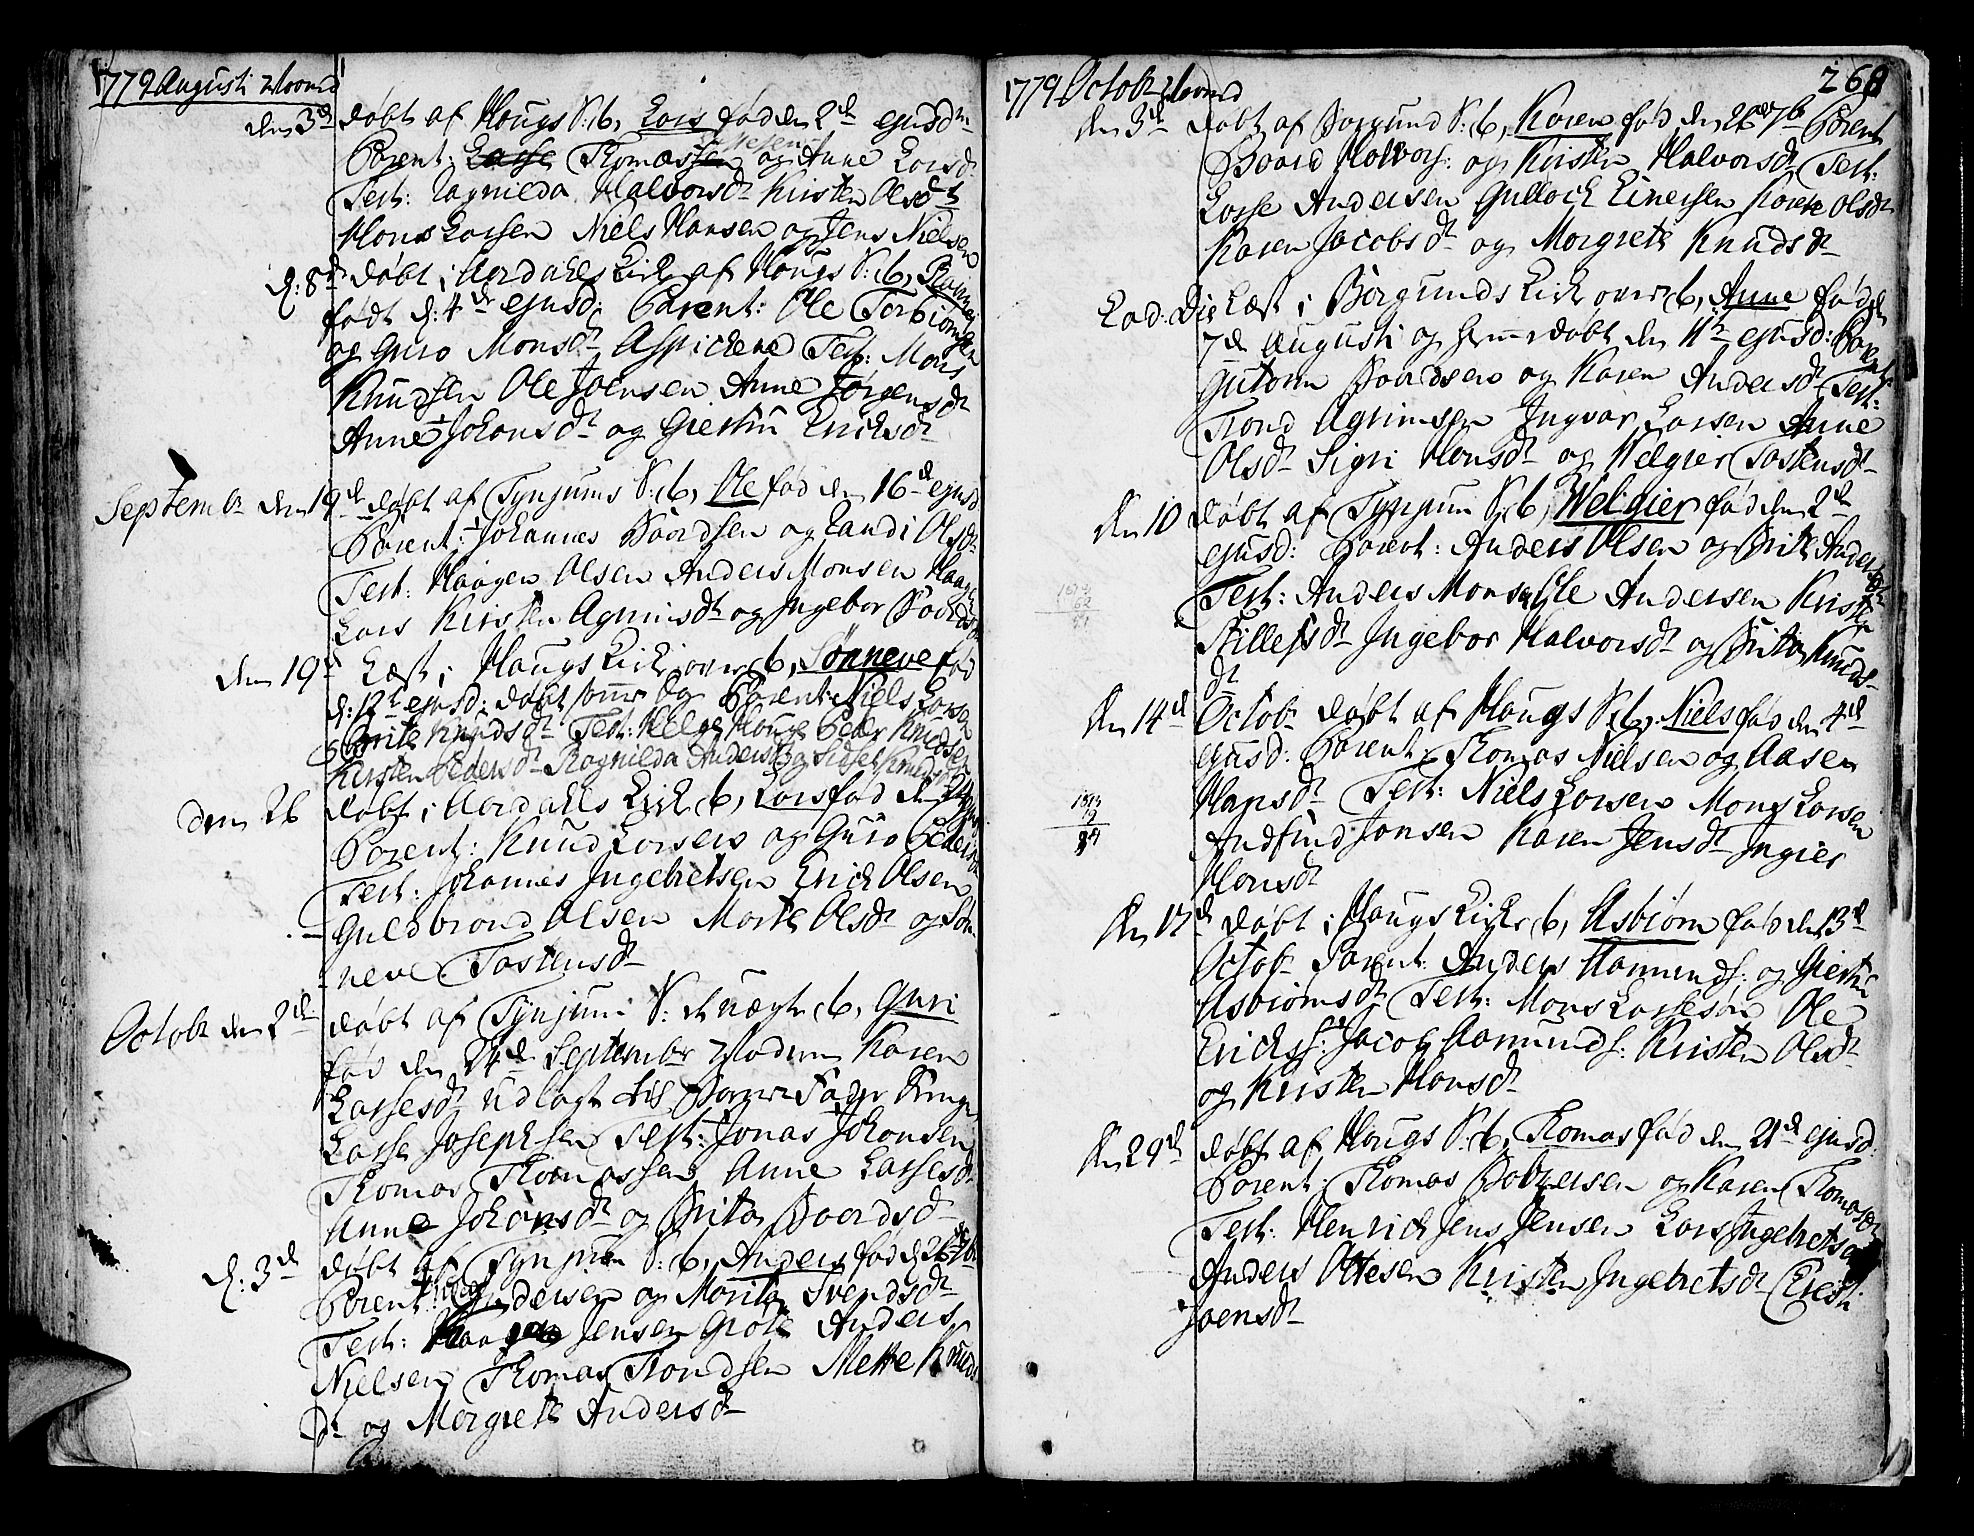 1779 Augusti Moned
den 3d døbt af Hougs S: b, Lars fød den 2d ejusdm
Parent: Lasse Thomassen Olesen og Anne Larsd
Test: Ragnilda Halvorsdt Kirsten Olsdt
Hans Larsen Niels Hansen og Jens Nielsen
d: 8d døbt i Aardahls Kirke af Hougs S: b,
født d: 4de ejusd: Parent: Ole Torbiornsen
og Guro Monsdt Test: Mons
Knudsen Ole Joensen Anne Jørgensdt
Anne Johansdt og Giertru Ericksdt
Septembr den 19d døbt af Tynjums S: b, Ole fød den 16d ejusd
Parent: Johannes Baardsen og Randi Olsdt
Test: Haagen Olsen Anders Monsen Haagen
Lars Kirsten Agrimsdt og Ingebor Baardsdt
den 19d Læst i Haugs Kirke over b, Sønneve fød
d: 12d ejusd: døbt samme Dag Parent: Niels Larsen
Brite Knudsdt Test: Helge Houge Peder Knudsen
Kirsten Pedersdt Ragnilda Andersdt og Sidsel Knudsdt
den 26 døbt i Aardahls Kirk b, Lars fød den
Parent: Knud Larsen og Guro Pedersdt
Test: Johannes Ingebretsen Erick Olsen
Guldbrand Olsen Marte Olsdt og Søn
neve Tostensdt
Octobr den 2d døbt af Tynjum S: b, Guri
fød den 24d Septembr Moderen Karen
Lassesdt Udlagt til Barne Fader
Lasse Josephsen Test: Jonas Johansen
Thomas Thomassen Anne Lassesdt
Anne Johansdt og Brita Baardsdt
d: 3d døbt af Tynjum S: b, Anders fød d: 26 7br
Parent: Andersen og Marita Svendsdt
Test: Jensen Grote Anders
Nielsen Thomas Trondsen Mette Knuds
dt og Margrete Andersdt
1779 Octobr Moned 260
den 3d døbt af Borgund S: b, Karen fød den 26d 7b Parent
Baard Halvors: og Kirsten Halvorsdt Test:
Lasse Andersen Gullock Einersen Karen Olsdt
Karen Jacobsdt og Margrete Knudsdt
Eod: Die Læst i Borgunds Kirk over b, Anne fød d
7de Augusti og hiemedøbt den 11te ejusd: Parent:
Gutorm Baardsen og Karen Andersdt Test:
Trond Agrimsen Ingvar Larsen Anne
Olsdt Sigri Hansdt og Welgier Tostensdt
den 10 døbt af Tynjum S: b, Welgier fød den 2d
ejusd: Parent: Anders Olsen og Brite Andersdt
Test: Anders Monsen Ole Andersen Kristen
Stillefsdt Ingebor Halvorsdt og Brita Knuds-
dt
den 14d Octobr døbt af Hougs S: b, Niels fød den 4d
ejusd: Parent: Thomas Nielsen og Aasen
Hansdt Test: Niels Larsen Mons Larsen
Andfind Jonsen Karen Jensdt Ingier
Hansdt
den 17d døbt i Haugs Kirke b, Asbiørn fød den 13d
Octobr Parent: Anders Hamunds: og Giertru
Asbiørnsdt Test: Mons Lassesøn Ole
Ericks: Jacob Aamunds: Kirsten Olsdt
og Kirsten Hansdt
den 29d døbt af Hougs S: b, Thomas fød den 21d ejusd:
Parent: Thomas Boltzersen og Karen Thomasdt
Test: Henrich Jens Jensen Lars Ingebretsen
Anders Ottesen Kristen Ingebretsdt Cresti
Joensdt